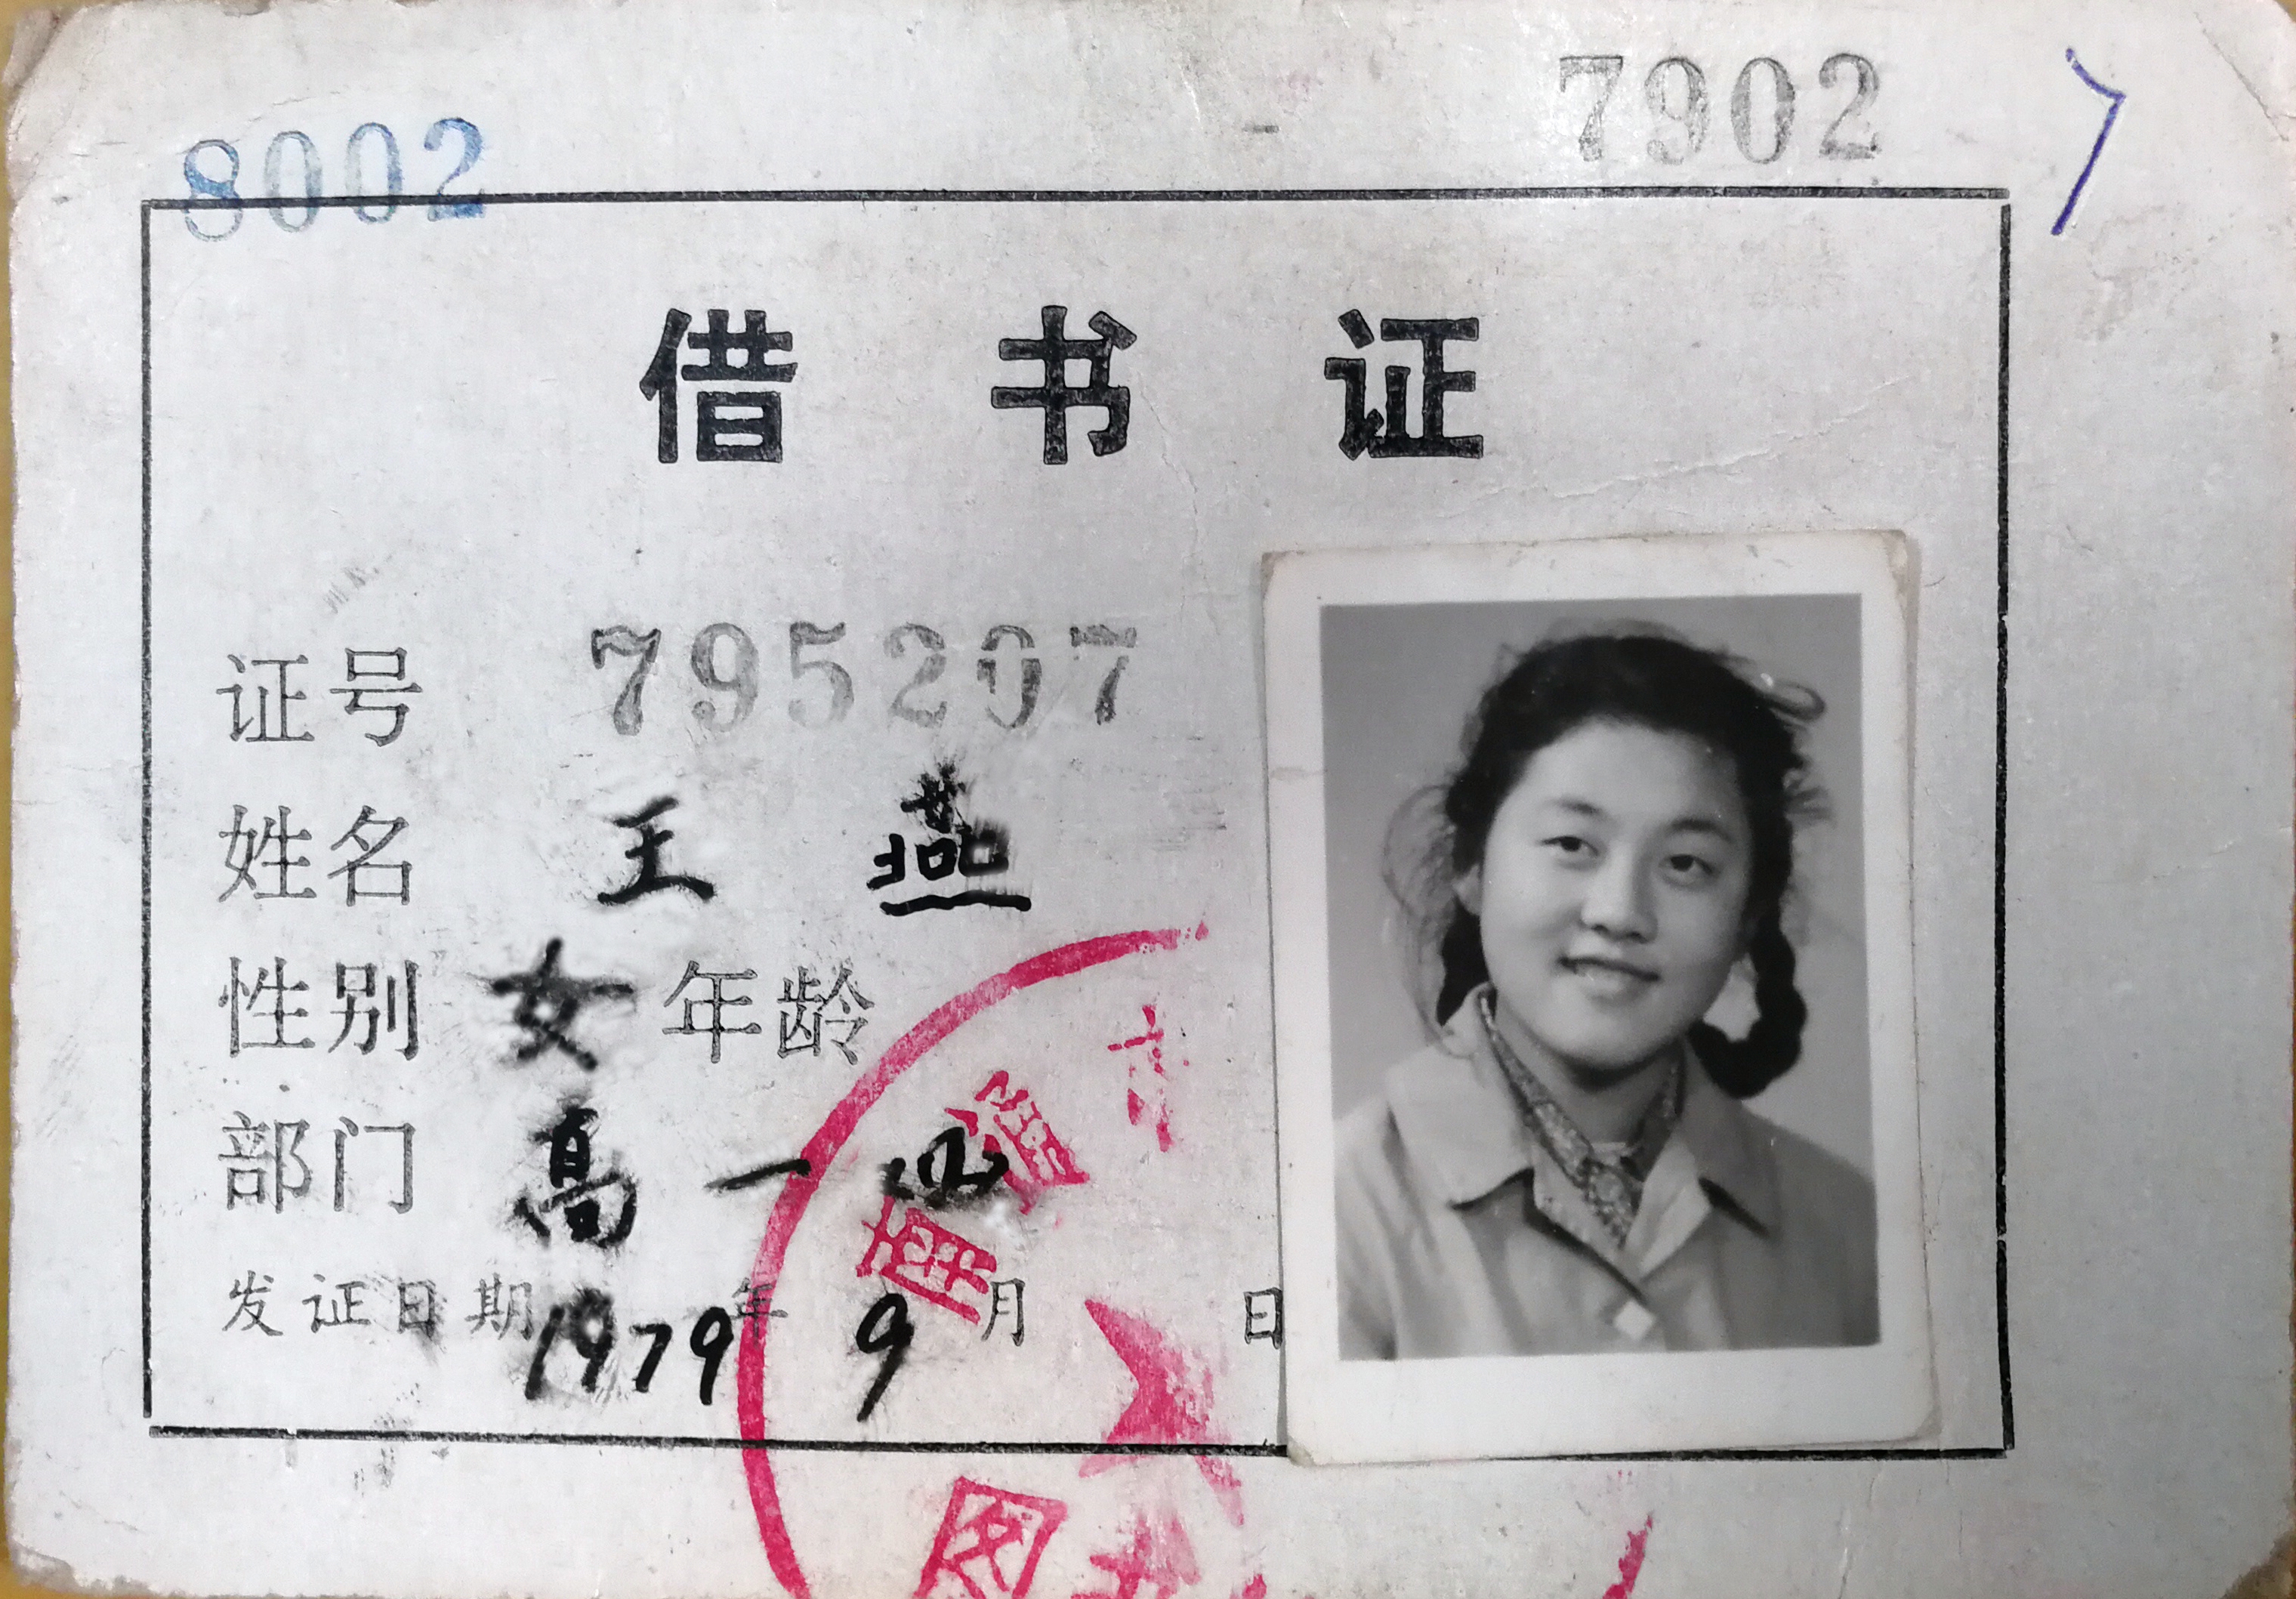 8002
7902
7
借书证
证号 795207
姓名 王燕
性别 女 年龄
部门 高一
发证日期 1979年9月 日
图书